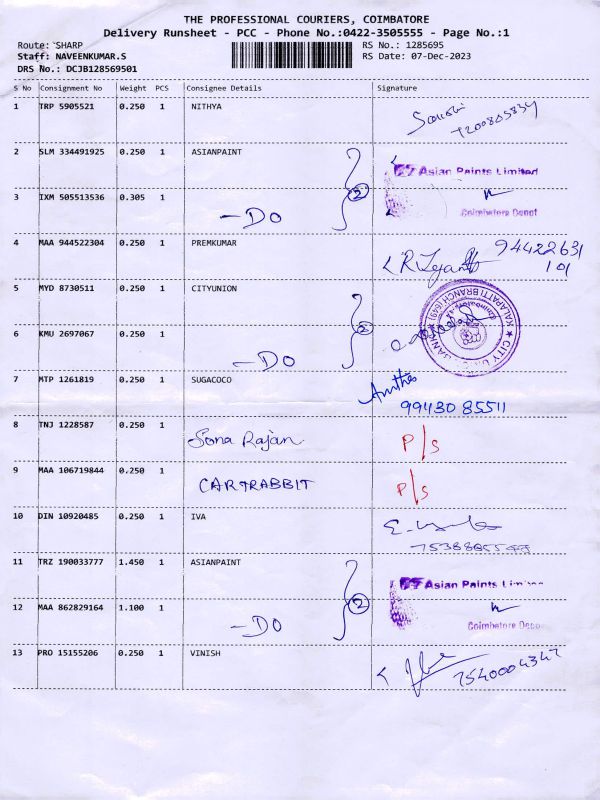 THE PROFESSIONAL COURIERS, COIMBATORE
Delivery Runsheet - PCC - Phone No.:0422-3505555 - Page No.:1
Route: SHARP RS No.: 1285695
Staff: NAVEENKUMAR.S RS Date: 07-Dec-2023
DRS No.: DCJB128569501
S No Consignment No Weight PCS Consignee Details Signature
1 TRP 5905521 0.250 1 NITHYA
2 SLM 334491925 0.250 1 ASIANPAINT Asian Paints Limited
3 IXM 505513536 0.305 1 -DO 2 Coimbatore Depot
4 MAA 944522304 0.250 1 PREMKUMAR 94422631
101
5 MYD 8730511 0.250 1 CITYUNION KALAPATTI BRANCH
6 KMU 2697067 0.250 1 -DO 2
7 MTP 1261819 0.250 1 SUGACOCO 99430 85511
8 TNJ 1228587 0.250 1 Sona Rajan P/S
9 MAA 106719844 0.250 1 CARTRABBIT P/S
10 DIN 10920485 0.250 1 IVA
11 TRZ 190033777 1.450 1 ASIANPAINT Asian Paints
12 MAA 862829164 1.100 1 -DO 2 Coimbatore
13 PRO 15155206 0.250 1 VINISH 7540004347